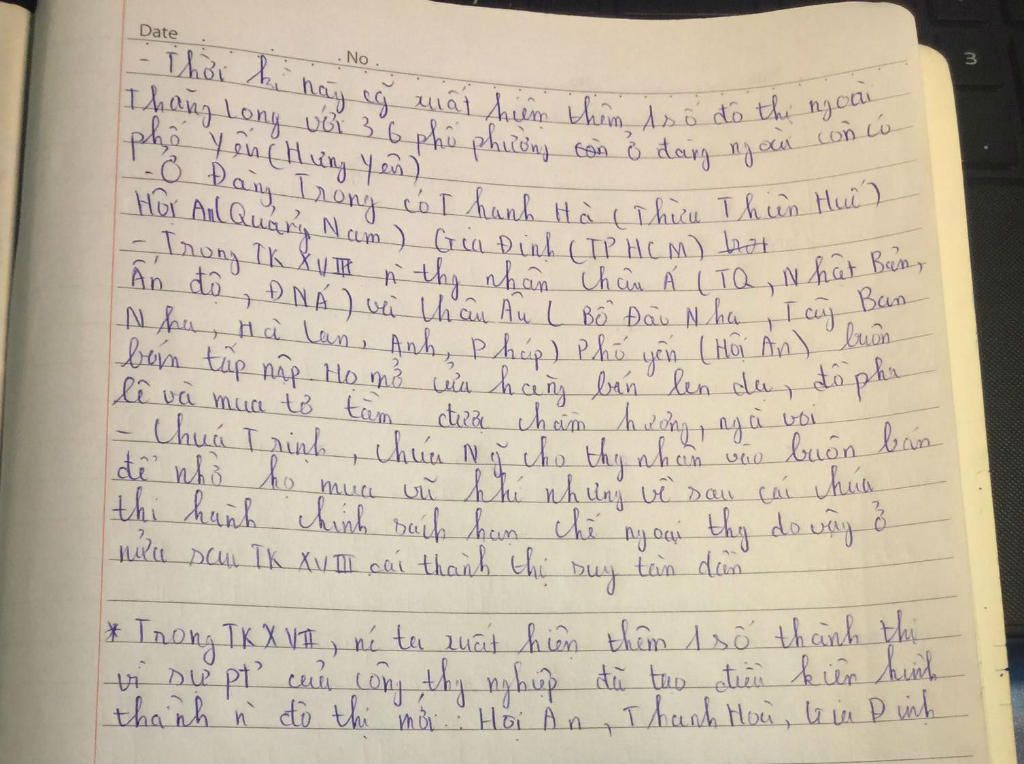 Date No
- Thời kì này cg̃ xuất hiện thêm 1 số đô thị ngoài
Thăng Long với 36 phố phường còn ở đàng ngoài còn có
phố Yến (Hưng Yên)
- Ở Đàng Trong có Thanh Hà (Thừa Thiên Huế)
Hội An (Quảng Nam) Gia Định (TP HCM)
- Trong TK XVIII n` thg nhân Châu Á (TQ, Nhật Bản,
Ấn độ, ĐNÁ) và Châu Âu (Bồ Đào Nha, Tây Ban
Nha, Hà Lan, Anh, Pháp) Phố yến (Hội An) buôn
bán tấp nập Họ mở cửa hàng bán len dạ, đồ pha
lê và mua tơ tằm đường chầm hương, ngà voi
- Chuá Trịnh, chúa Ng̃ cho thg nhân vào buôn bán
để nhờ họ mua vũ khí nhưng về sau các chúa
thi hành chính sách hạn chế ngoại thg do vậy ở
nửa sau TK XVIII các thành thị suy tàn dần
* Trong TK XVII, nc ta xuất hiện thêm 1 số thành thị
vì sự pt' của công thg nghiệp đã tạo điều kiện hình
thành n` đô thị mới: Hội An, Thanh Hoà, Gia Định
3